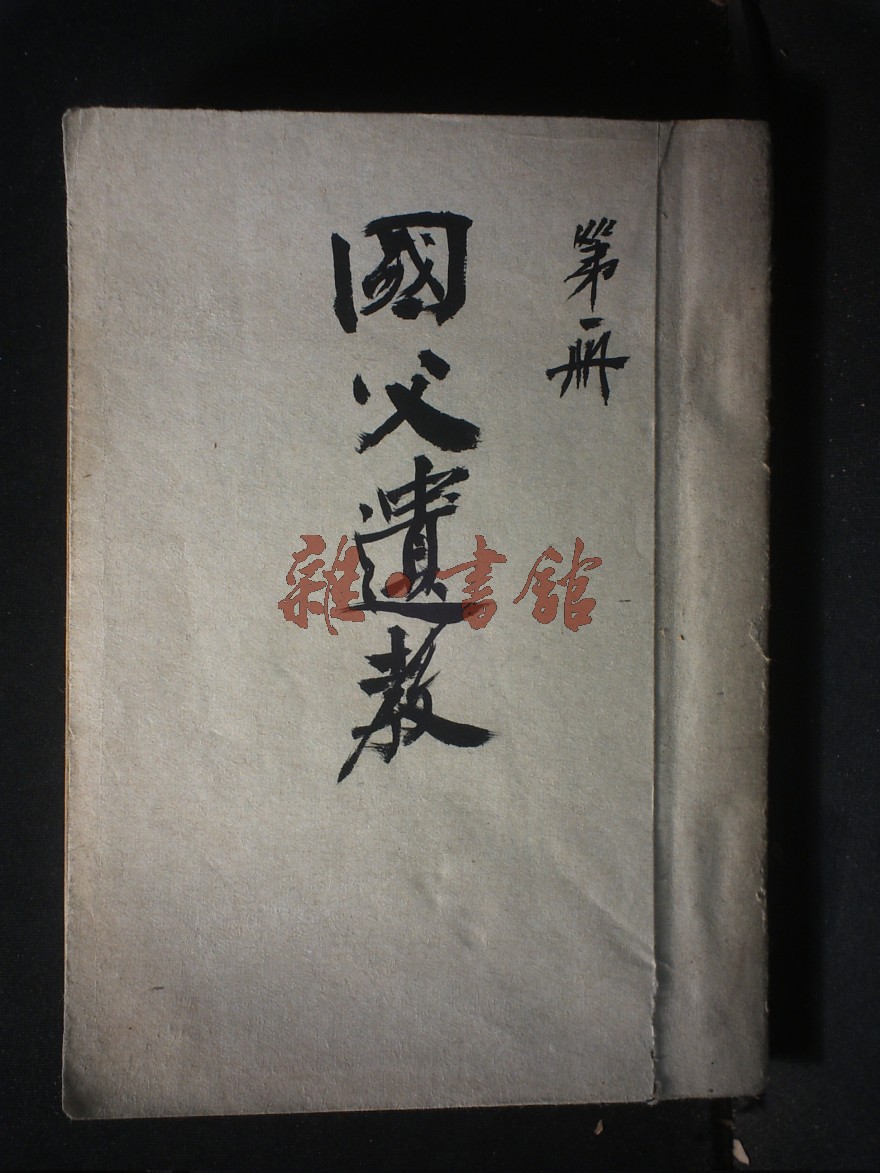 第一册
國父遺教
雜·書館